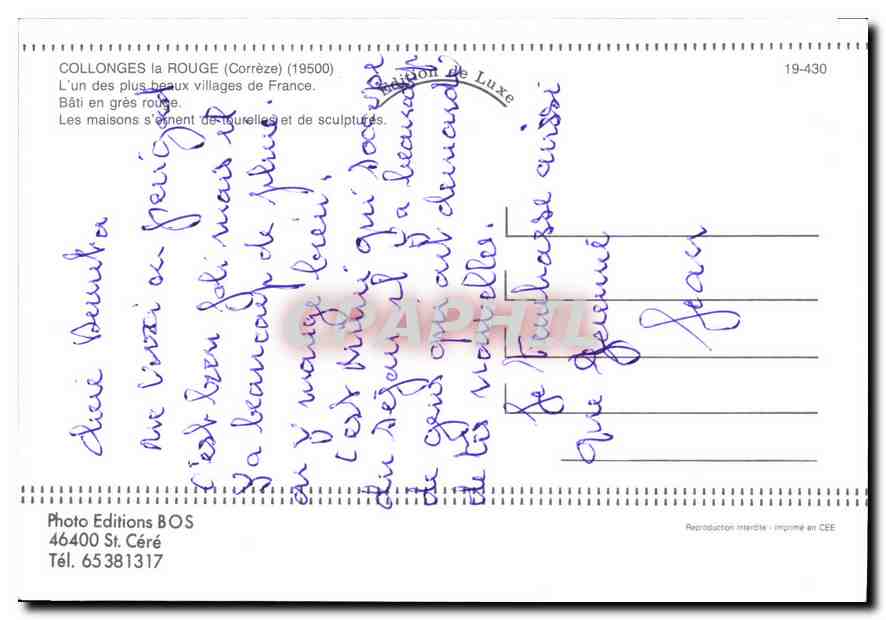 COLLONGES la ROUGE (Corrèze) (19500)
L'un des plus beaux villages de France.
Bâti en grès rouge.
Les maisons s'ornent de tourelles et de sculptures.
Edition de Luxe
19-430
me voici en périgord
c'est bien joli mais il
y a beaucoup de pluie.
on y mange bien.
c'est Mimi qui s'occupe
du séjour il y a beaucoup
de gens qui ont demandé
de tes nouvelles.
Je t'embrasse aussi
que
Jean
CPAPHIL
Photo Editions BOS
46400 St. Céré
Tél. 65381317
Reproduction interdite - Imprimé en CEE